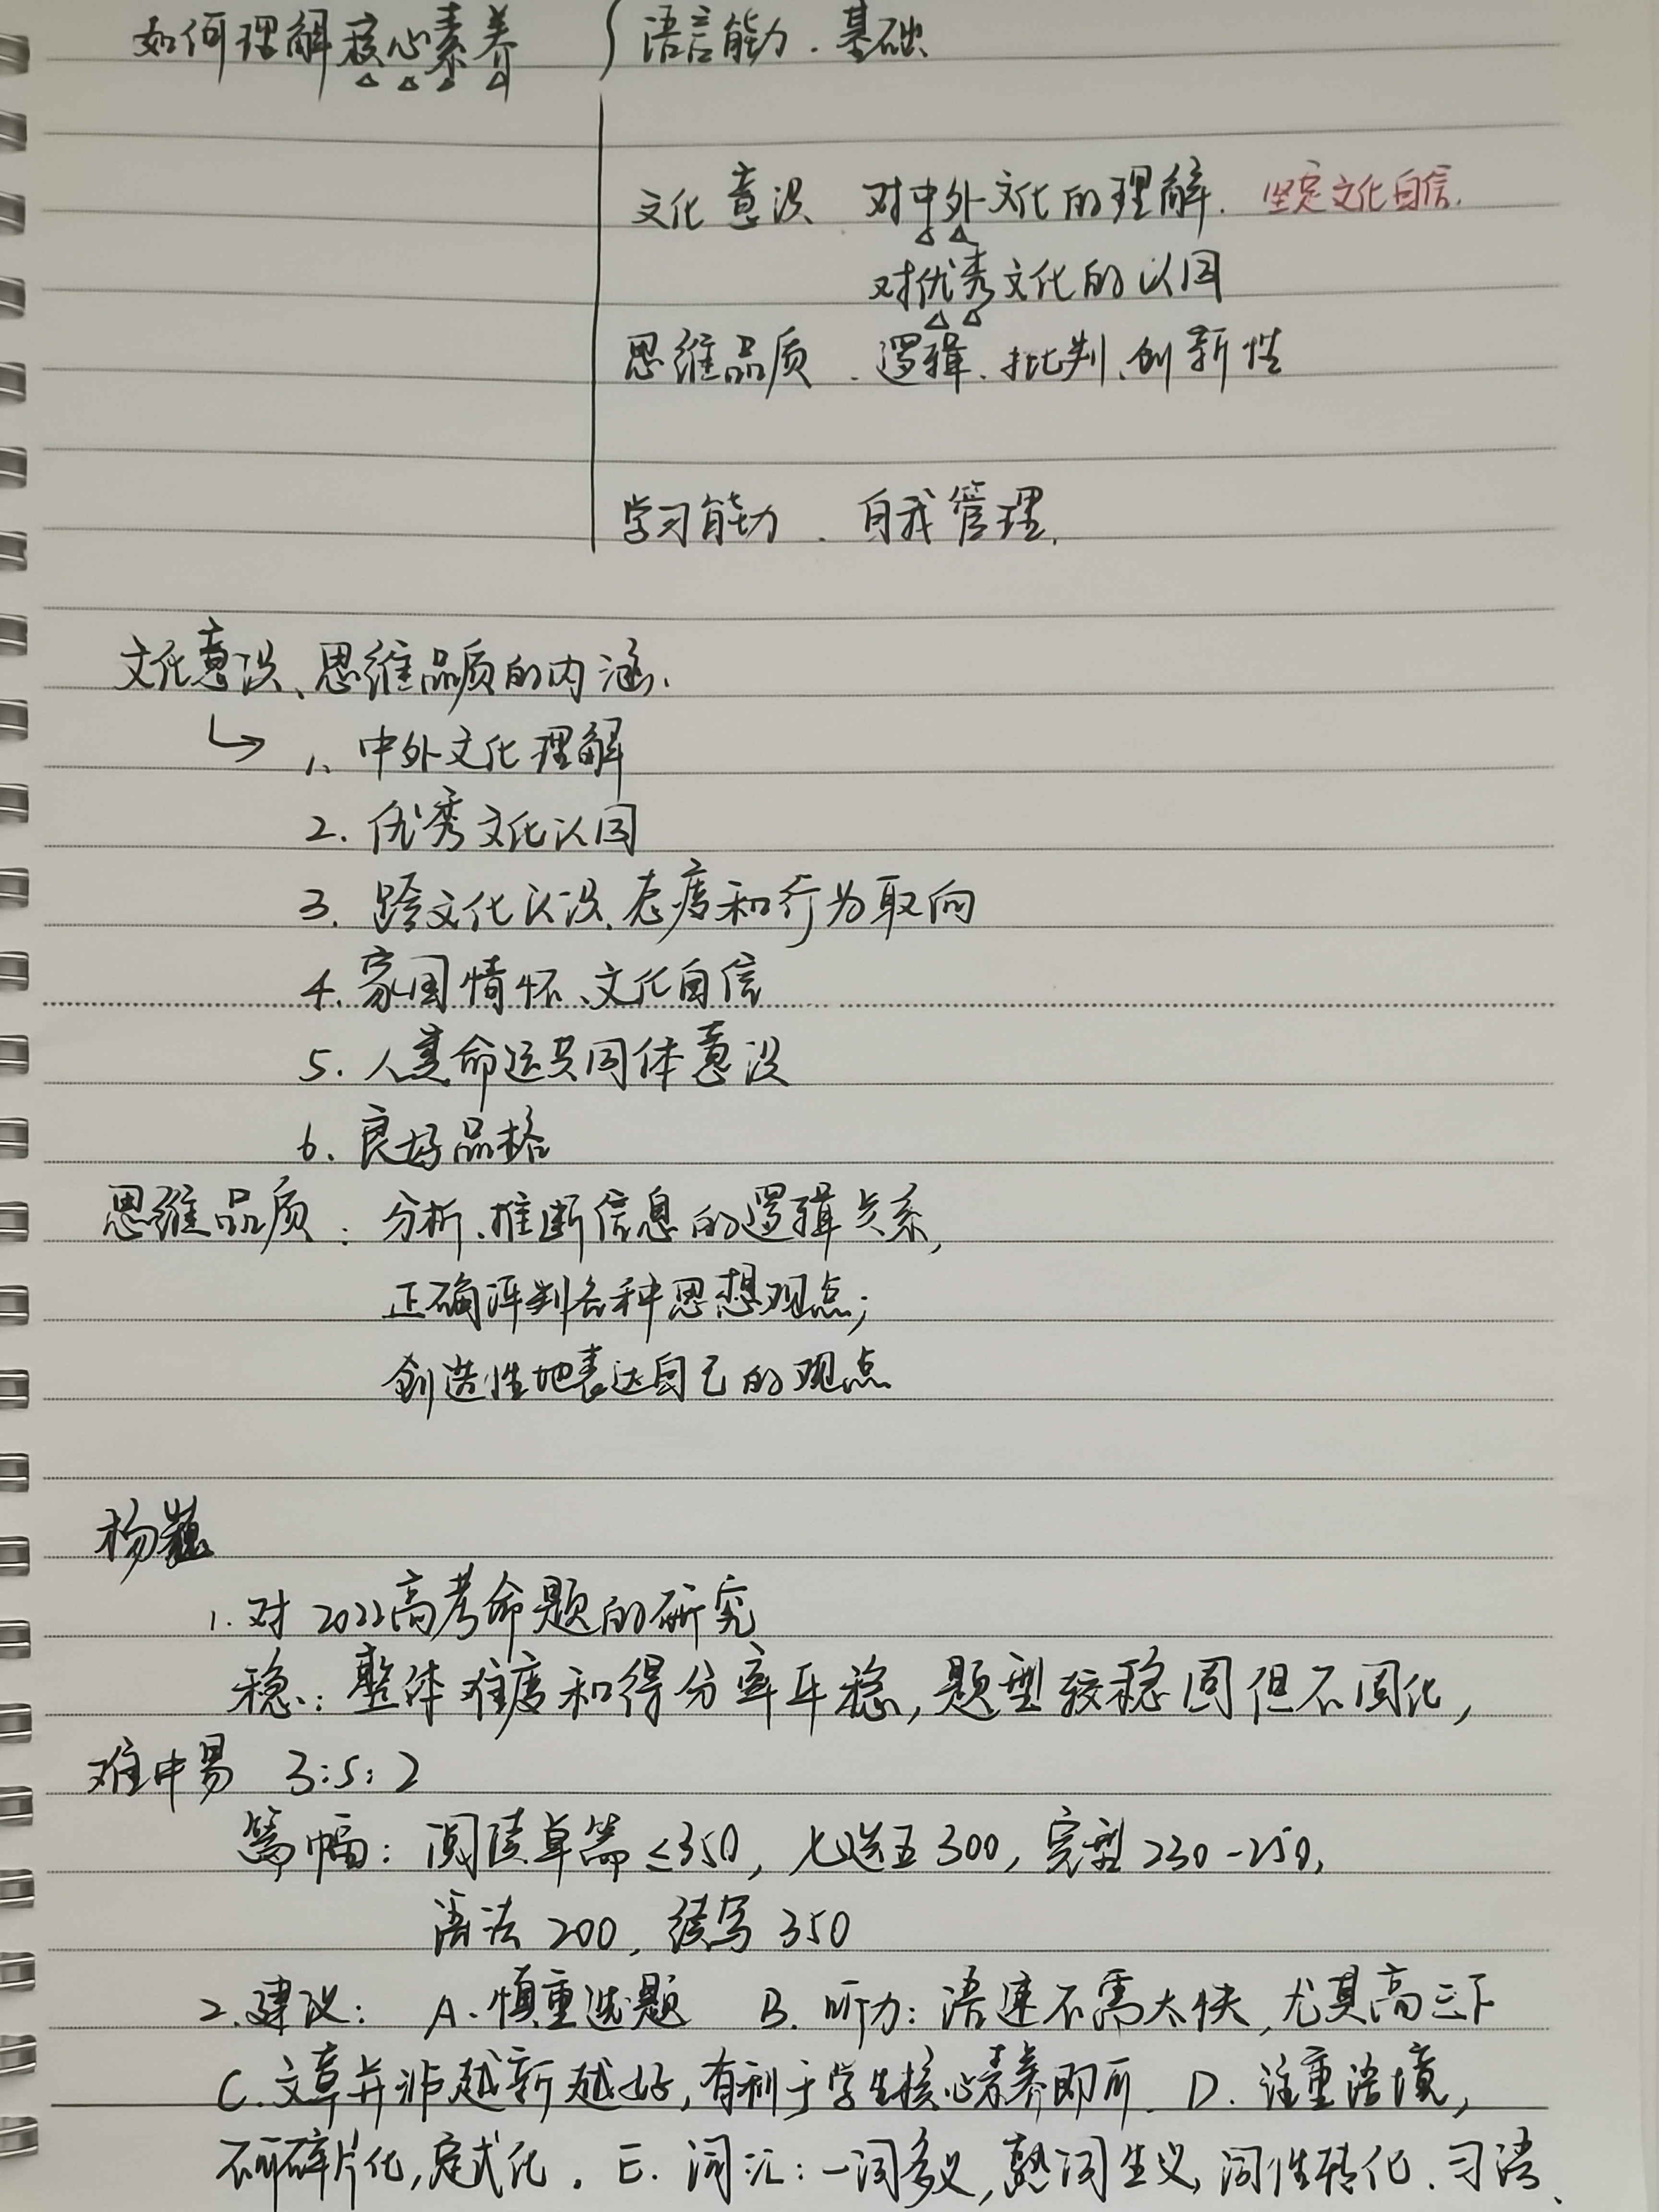 如何理解核心素养 语言能力. 基础
文化意识 对中外文化的理解. 坚定文化自信.
对优秀文化的认同
思维品质. 逻辑、批判、创新性
学习能力. 自我管理.
文化意识、思维品质的内涵.
1、中外文化理解
2. 优秀文化认同
3. 跨文化认识、态度和行为取向
4. 家国情怀、文化自信
5. 人类命运共同体意识
6. 良好品格
思维品质: 分析、推断信息的逻辑关系,
正确评判各种思想观点;
创造性地表达自己的观点
杨
1. 对2022高考命题的研究
稳: 整体难度和得分率平稳, 题型较稳固但不固化,
难中易 3:5:2
篇幅: 阅读单篇≤350, 七选五300, 完型230-250,
语法200, 续写350
2. 建议: A. 慎重选题 B. 听力: 语速不需太快, 尤其高三下
C. 文章并非越新越好, 有利于学生核心素养即可. D. 注重语境,
不可碎片化, 定式化. E. 词汇: 一词多义, 熟词生义, 词性转化、习语、